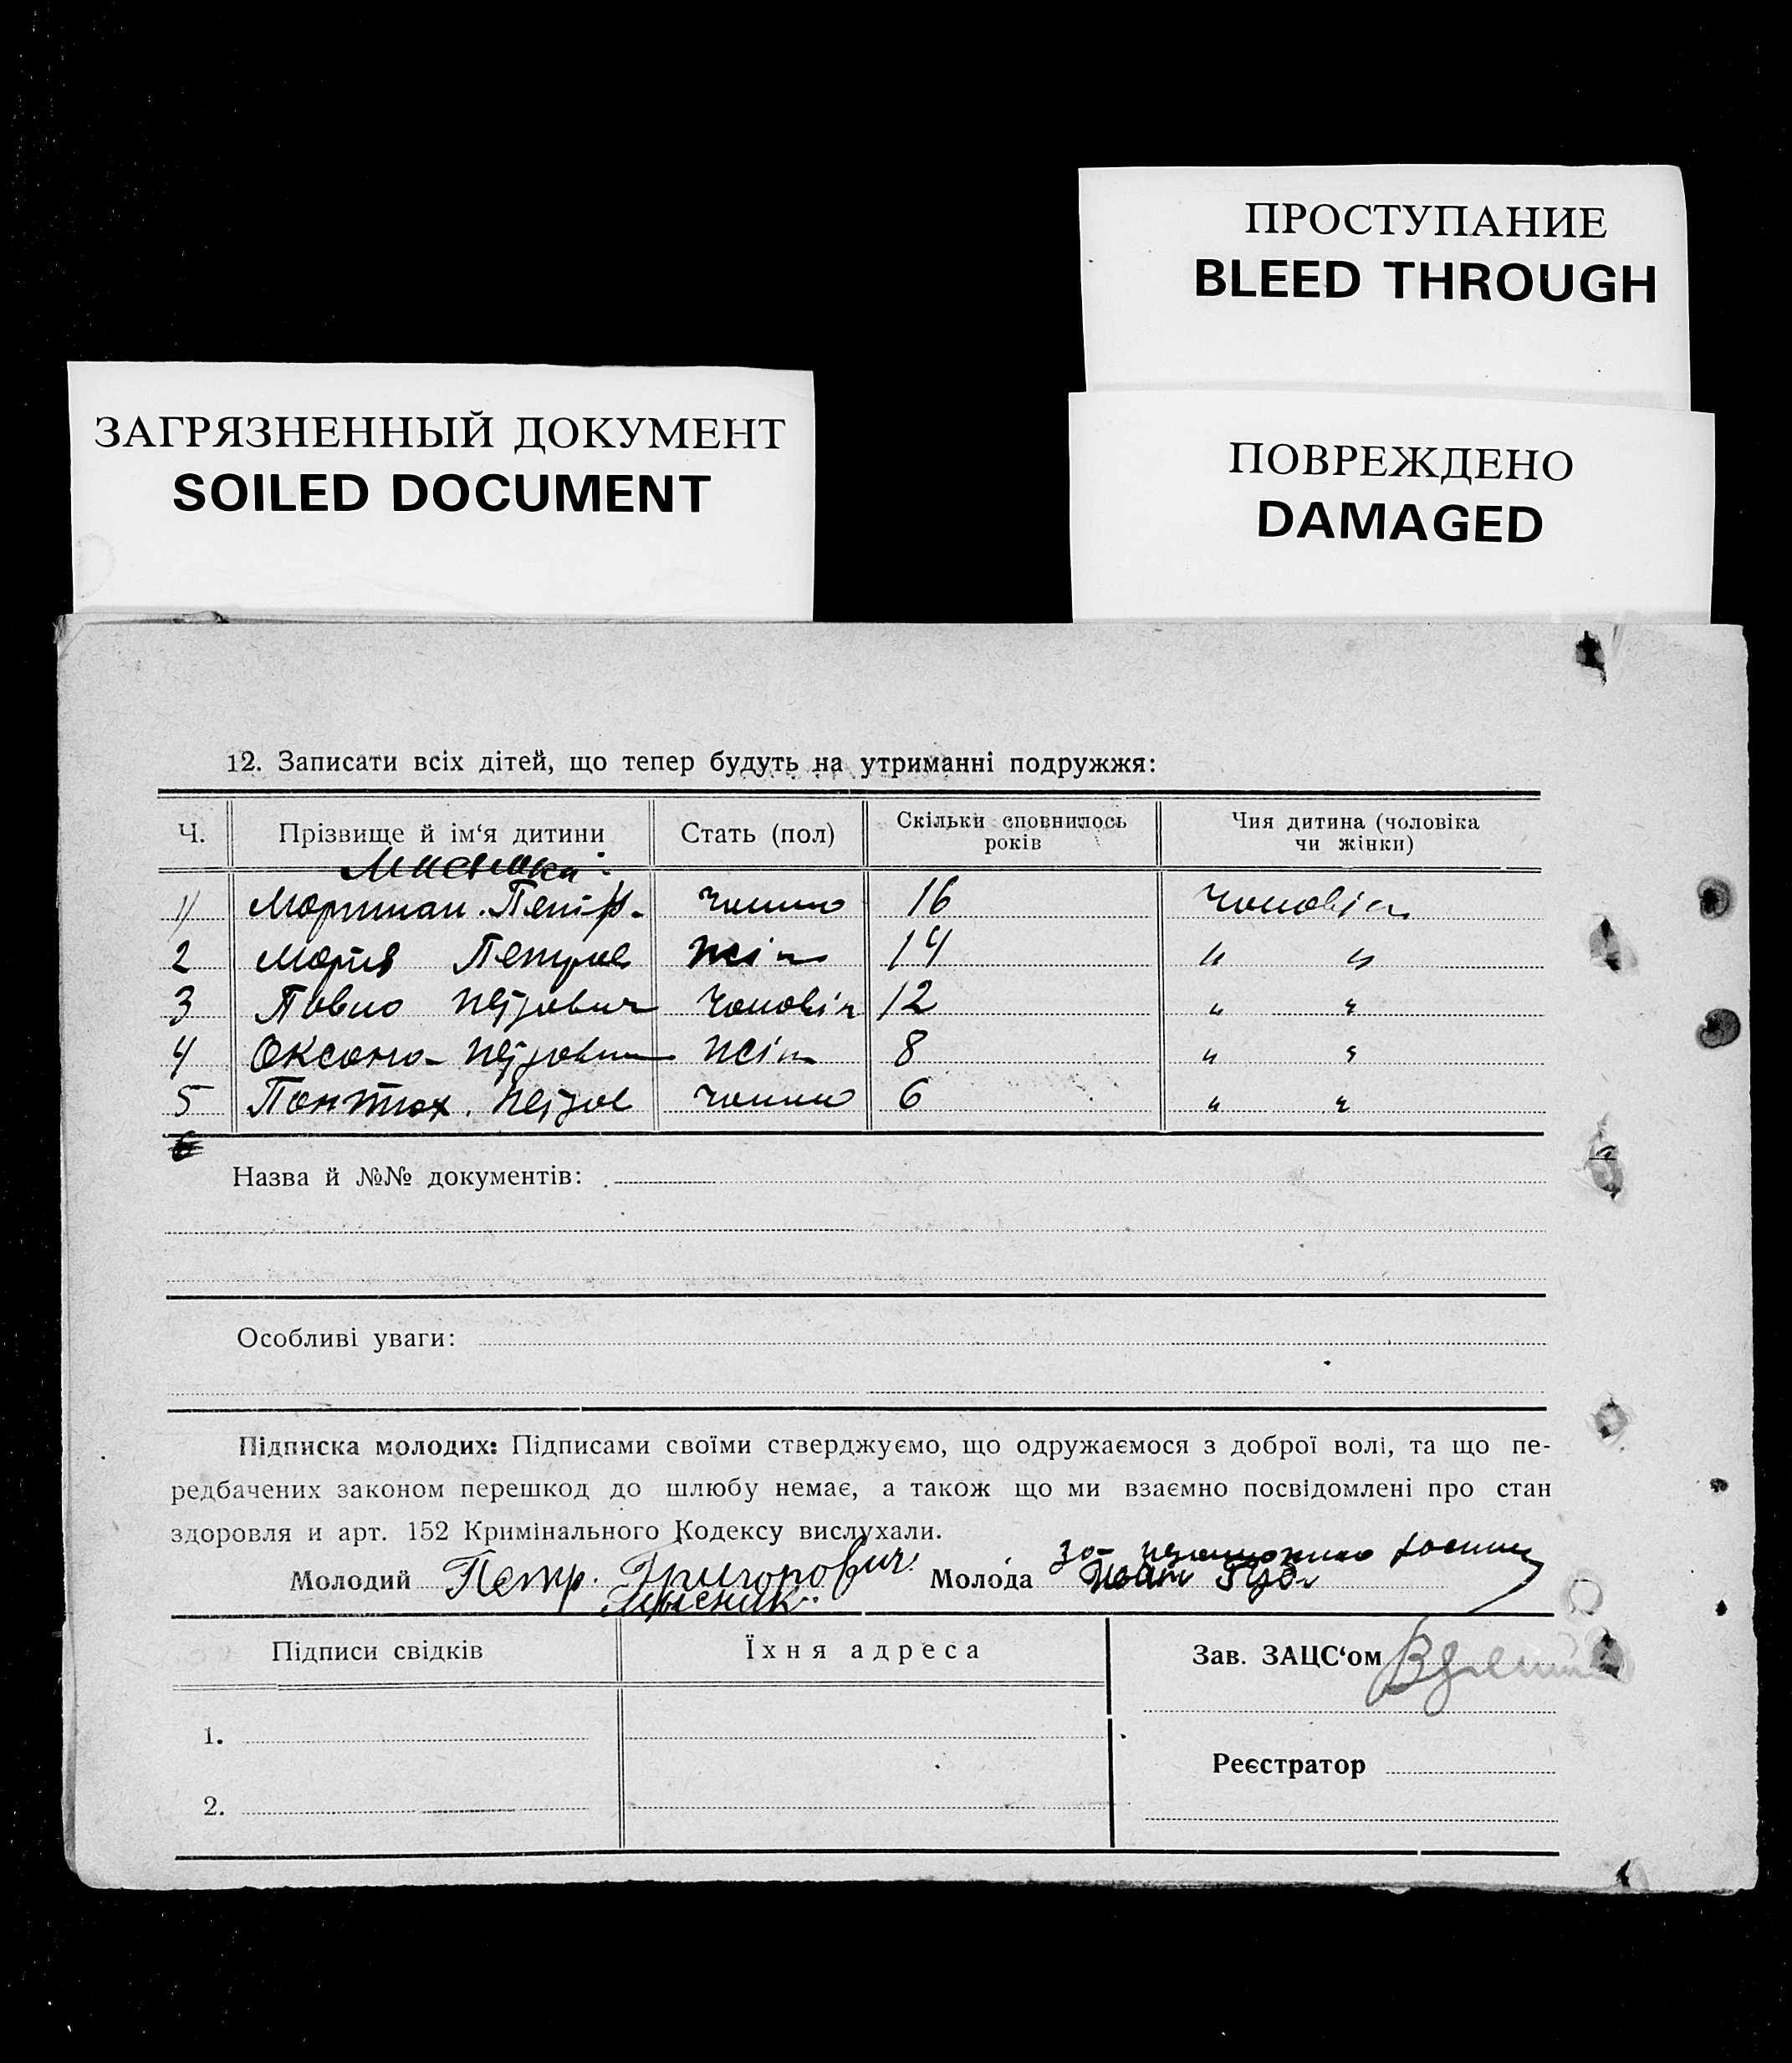 ПРОСТУПАНИЕ
BLEED THROUGH
ЗАГРЯЗНЕННЫЙ ДОКУМЕНТ
SOILED DOCUMENT
ПОВРЕЖДЕНО
DAMAGED
12. Записати всіх дітей, що тепер будуть на утриманні подружжя:
Ч. Прізвище й ім‘я дитини Стать (пол) Скільки сповнилось років Чия дитина (чоловіка чи жінки)
1) 16 Чоловік
2 Мария Петров жін 14 " "
3 Павло Петрович Чоловік 12 " "
4 Оксана жін 8 " "
5 Пантюх. Петров 6 " "
6
Назва й №№ документів:
Особливі уваги:
Підписка молодих: Підписами своїми стверджуємо, що одружаємося з доброї волі, та що пе-
редбачених законом перешкод до шлюбу немає, а також що ми взаємно посвідомлені про стан
здоровля и арт. 152 Кримінального Кодексу вислухали.
Молодий Петр. Григорович Молода за
Мысник
Підписи свідків Їхня адреса Зав. ЗАЦС‘ом
1.
Реєстратор
2.